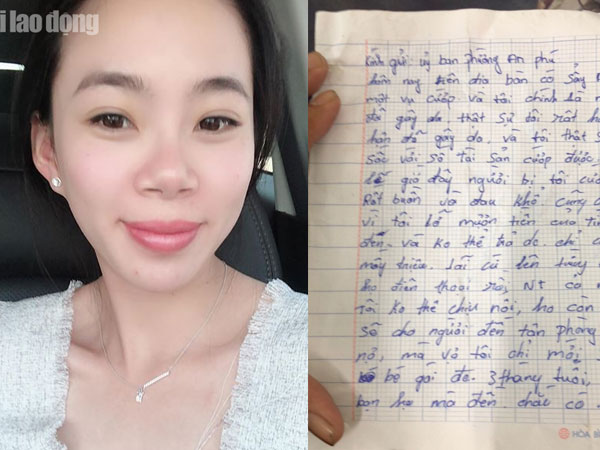 i lao động
Kính gửi uỷ ban phường An phú
hôm nay trên địa bàn có sảy
một vụ cướp và tôi chính là
đã gây da thật sự tôi rất
hận đã gây da, và tôi thật
sốc với số tài sản cướp được
giờ đây người bị tôi
Rất buồn và đau khổ cũng
vì tôi lỡ mượn tiền của
đen và ko thể trả dc. chỉ
mấy triệu. lãi cứ lên
họ điện thoại NT
tôi ko thể chịu nổi, họ còn
sẽ cho người đến tận phòng
nó, mà vợ tôi chỉ mới
bé gái đc. 3 tháng tuổi,
họ mà đến. chắc có
HÒA B